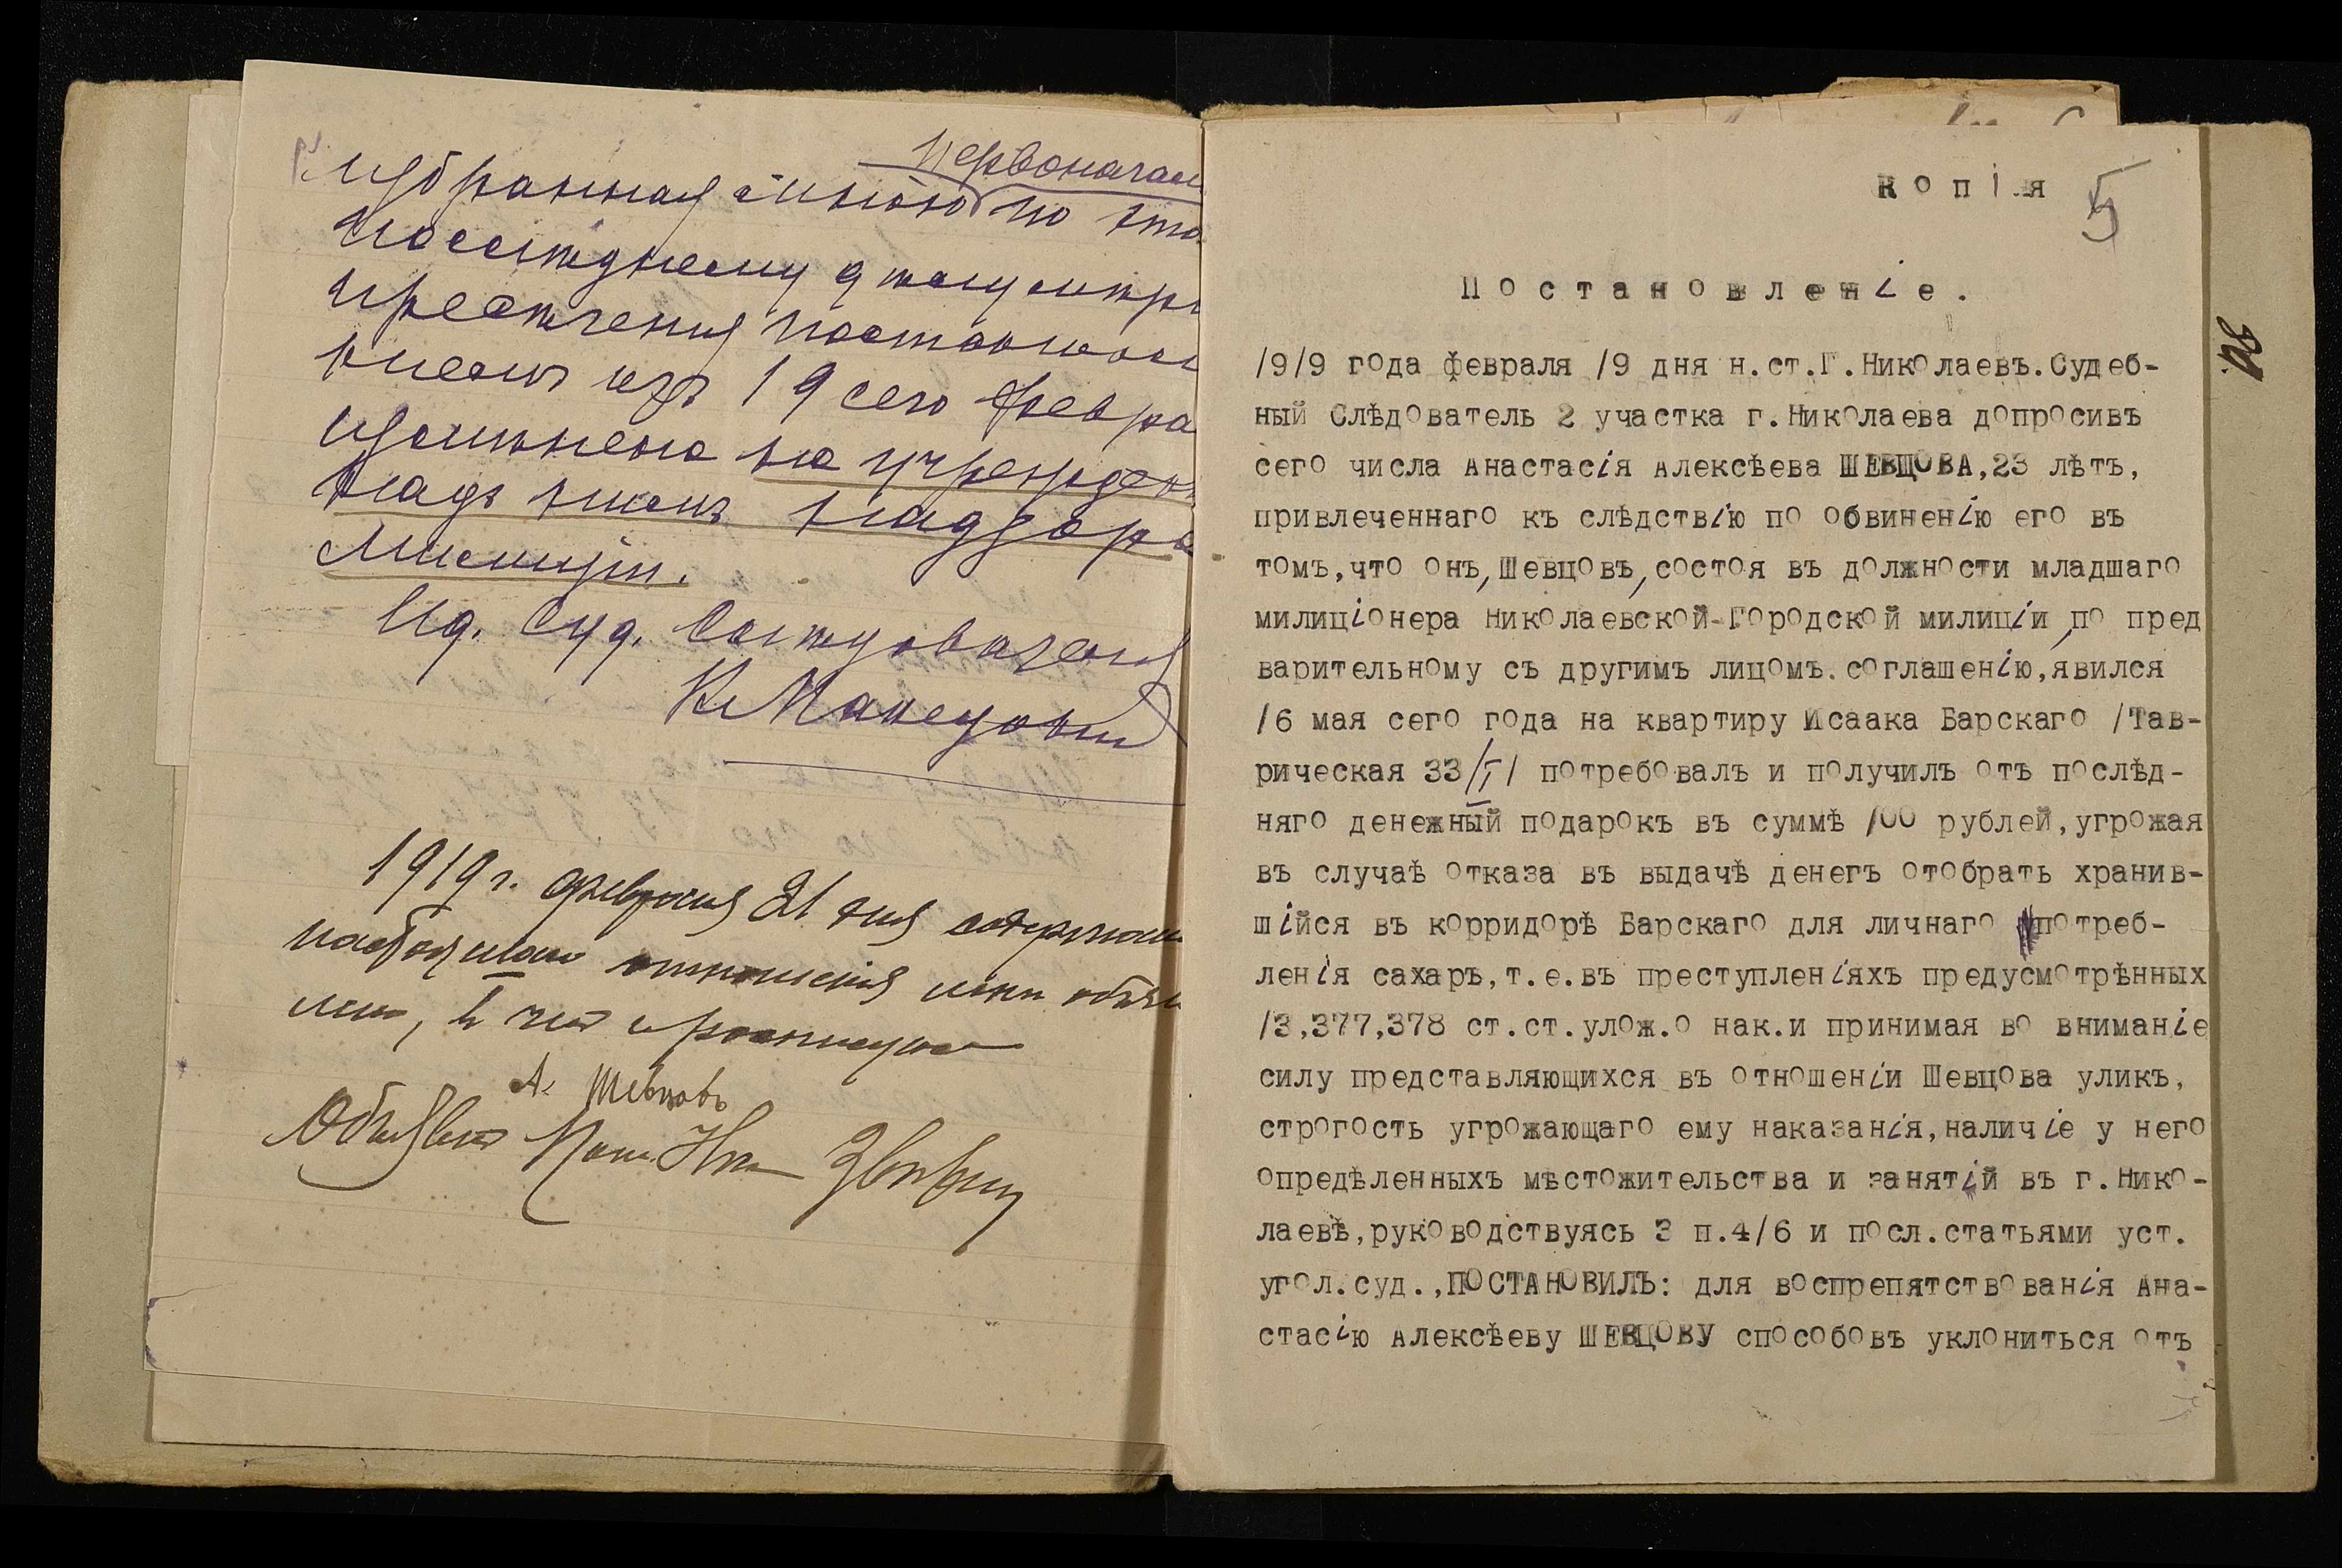 Первонача
избранная мною по
послѣднему дѣлу мѣра
пресѣченія постановле
ніемъ отъ 19 сего Февра
измѣнена на учрежден
надъ нимъ надзора
Милиціи.
Ид. Суд. Слѣдователя
1919 г. февраля 21 дня содержан
настоящаго отношенія мнѣ объяв
лено, въ чемъ и росписуюсь
А. Шевцовъ
Объявилъ
копія 5
Постановленіе.
/9/9 года февраля /9 дня н.ст.Г.Николаевъ.Судеб-
ный Слѣдователь 2 участка г.Николаева допросивъ
сего числа Анастасія Алексѣева ШЕВЦОВА,23 лѣтъ,
привлеченнаго къ слѣдствію по обвиненію его въ
томъ,что онъ,Шевцовъ,состоя въ должности младшаго
милиціонера Николаевской-Городской милиціи,по пред
варительному съ другимъ лицомъ.соглашенію,явился
/6 мая сего года на квартиру Исаака Барскаго /Тав-
рическая 33/I/ потребовалъ и получилъ отъ послѣд-
няго денежный подарокъ въ суммѣ /00 рублей,угрожая
въ случаѣ отказа въ выдачѣ денегъ отобрать хранив-
шійся въ корридорѣ Барскаго для личнаго потреб-
ленія сахаръ,т.е.въ преступленіяхъ предусмотрѣнных
/3,377,378 ст.ст.улож.о нак.и принимая во вниманіе
силу представляющихся въ отношеніи Шевцова уликъ,
строгость угрожающаго ему наказанія,наличіе у него
опредѣленныхъ мѣстожительства и занятій въ г.Нико-
лаевѣ,руководствуясь 3 п.4/6 и посл.статьями уст.
угол.суд.,ПОСТАНОВИЛЪ: для воспрепятствованія Ана-
стасію Алексѣеву ШЕВЦОВУ способовъ уклониться отъ